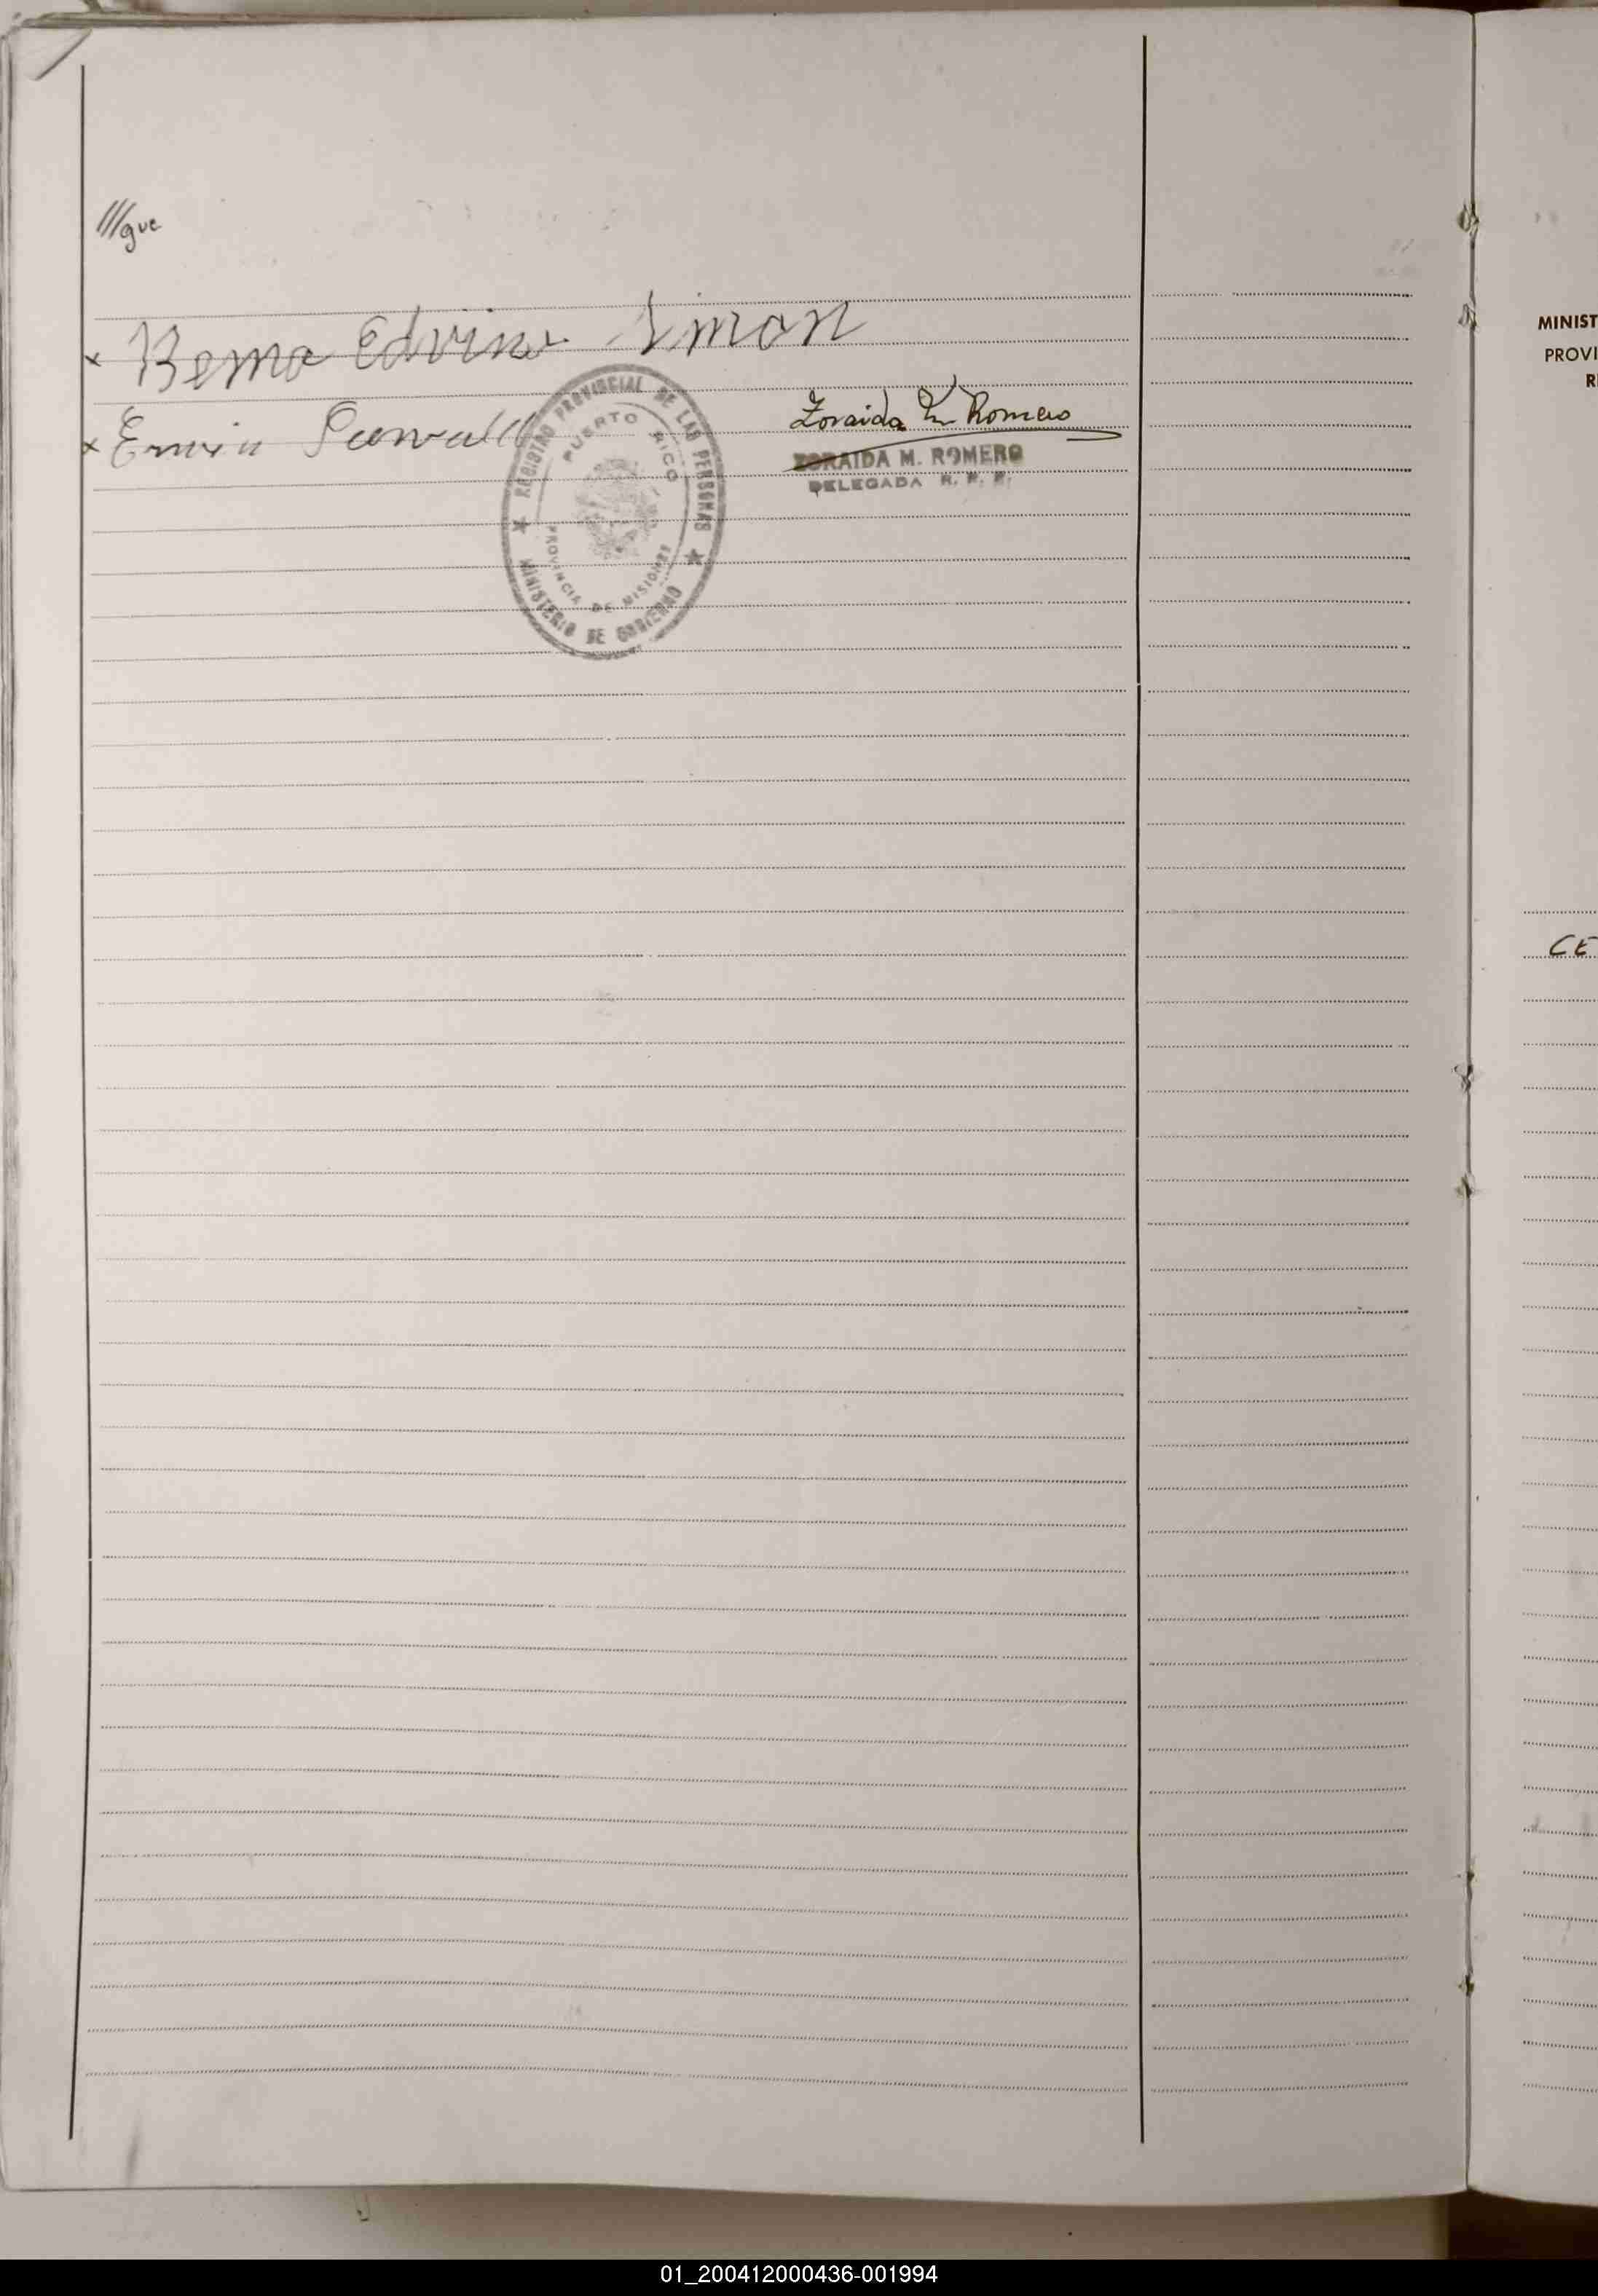 ///gue
x Bema Edvino Simon
x Erwin
Zoraida M Romero
ZORAIDA M. ROMERO
DELEGADA R. P. P.
REGISTRO PROVINCIAL DE LAS PERSONAS
PUERTO RICO
PROVINCIA DE MISIONES
MINISTERIO DE GOBIERNO
MINIST
PROVI
R
CE
01_200412000436-001994